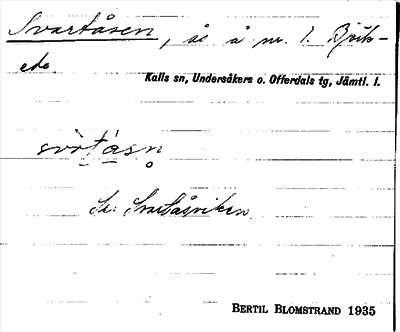 Svartåsen, ås å nr. 1. Björk-
ede.
Kalls sn, Undersåkers o. Offerdals tg, Jämtl. l.
svàrtåsn̥
Se: Svartåsviken.
BERTIL BLOMSTRAND 1935